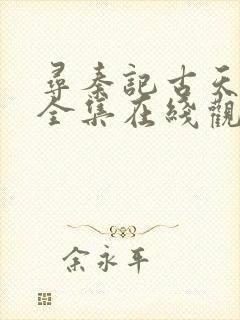 尋秦記古天
全集在綫觀
余永平